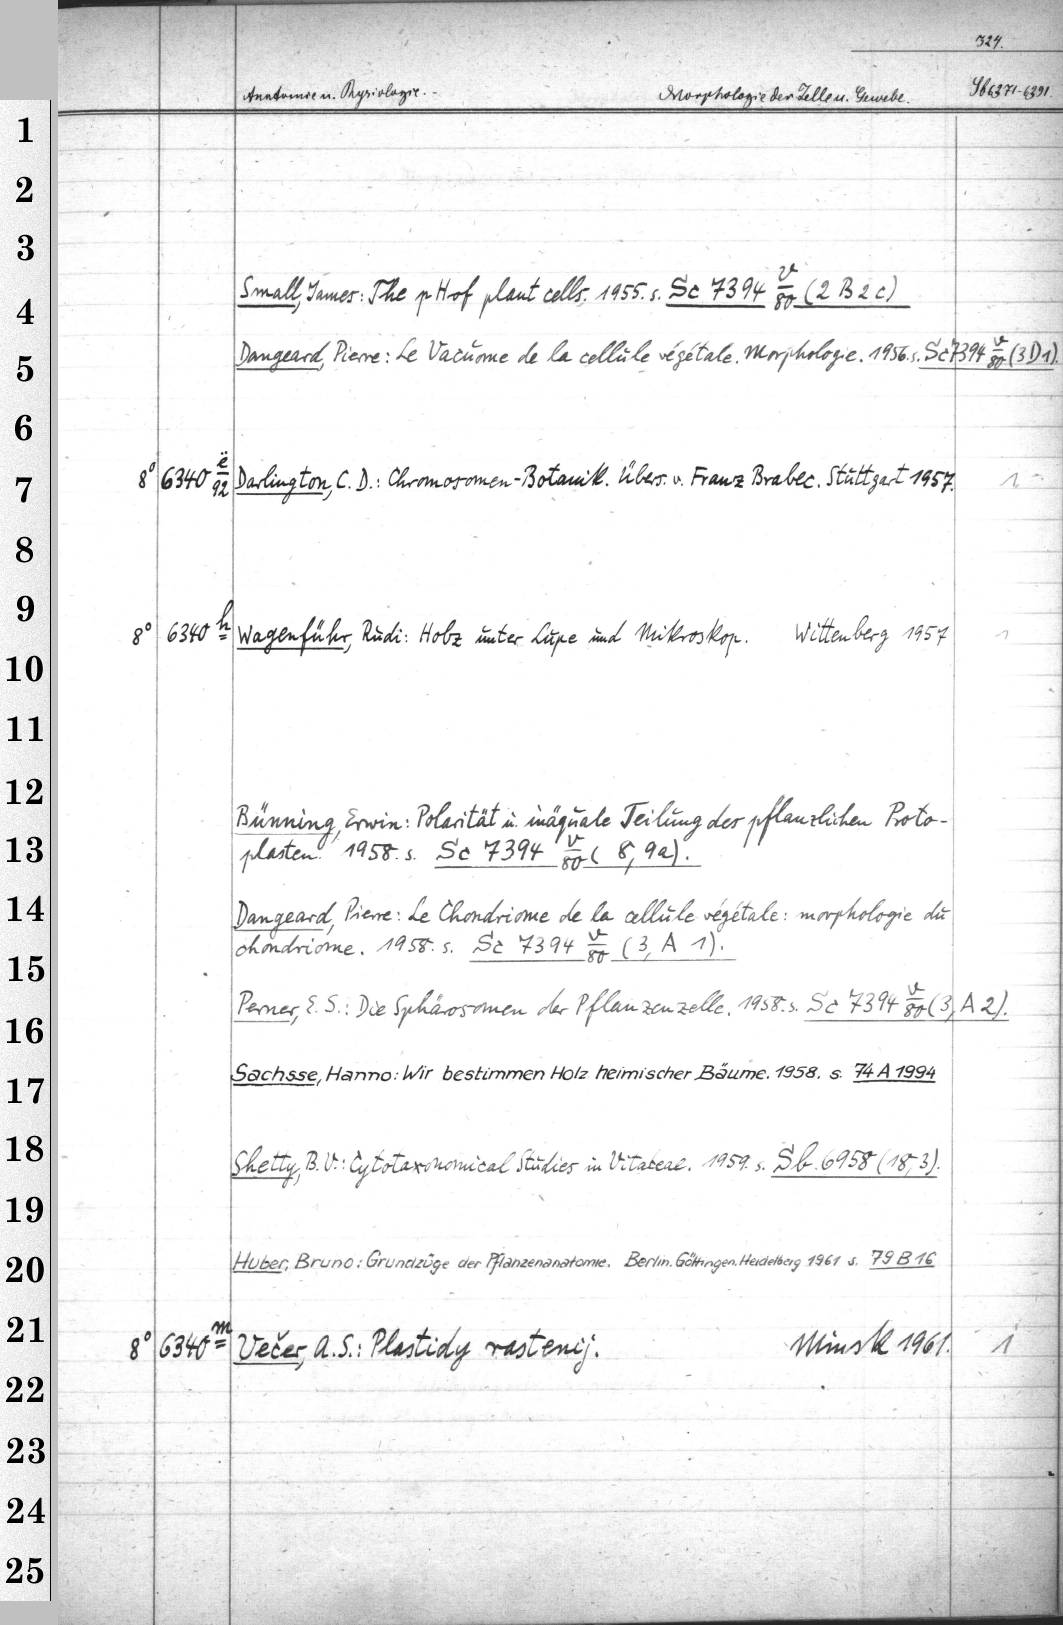 324.
Anatomie u. Physiologie. - Morphologie der Zelle u. Gewebe. Sb 6371-6391.
1
2
3
Small, James: The pH of plant cells. 1955. s. Sc 7394 v/80 (2 B 2 c)
4
Dangeard, Pierre: Le Vacuome de la cellule végétale. Morphologie. 1956. s. Sc 7394 v/80 (3 D 1).
5
6
8° 6340 ë/92 Darlington, C. D.: Chromosomen-Botanik. Übers. v. Franz Brabec. Stuttgart 1957. 1
7
8
9
8° 6340 h Wagenführ, Rudi: Holz unter Lupe und Mikroskop. Wittenberg 1957 1
10
11
12
Bünning, Erwin: Polarität u. inäquale Teilung des pflanzlichen Proto-
13
plasten. 1958. s. Sc 7394 v/80 (8, 9a).
14
Dangeard, Pierre: Le Chondriome de la cellule végétale: morphologie du
chondriome. 1958. s. Sc 7394 v/80 (3, A 1).
15
Perner, E. S.: Die Sphärosomen der Pflanzenzelle. 1958. s. Sc 7394 v/80 (3, A 2).
16
Sachsse, Hanno: Wir bestimmen Holz heimischer Bäume. 1958. s. 74 A 1994
17
18
Shetty, B. V.: Cytotaxonomical Studies in Vitaceae. 1959. s. Sb 6958 (18, 3).
19
Huber, Bruno: Grundzüge der Pflanzenanatomie. Berlin. Göttingen. Heidelberg 1961 s. 79 B 16
20
21
8° 6340 m Večer, A. S.: Plastidy rastenij. Minsk 1961. 1
22
23
24
25